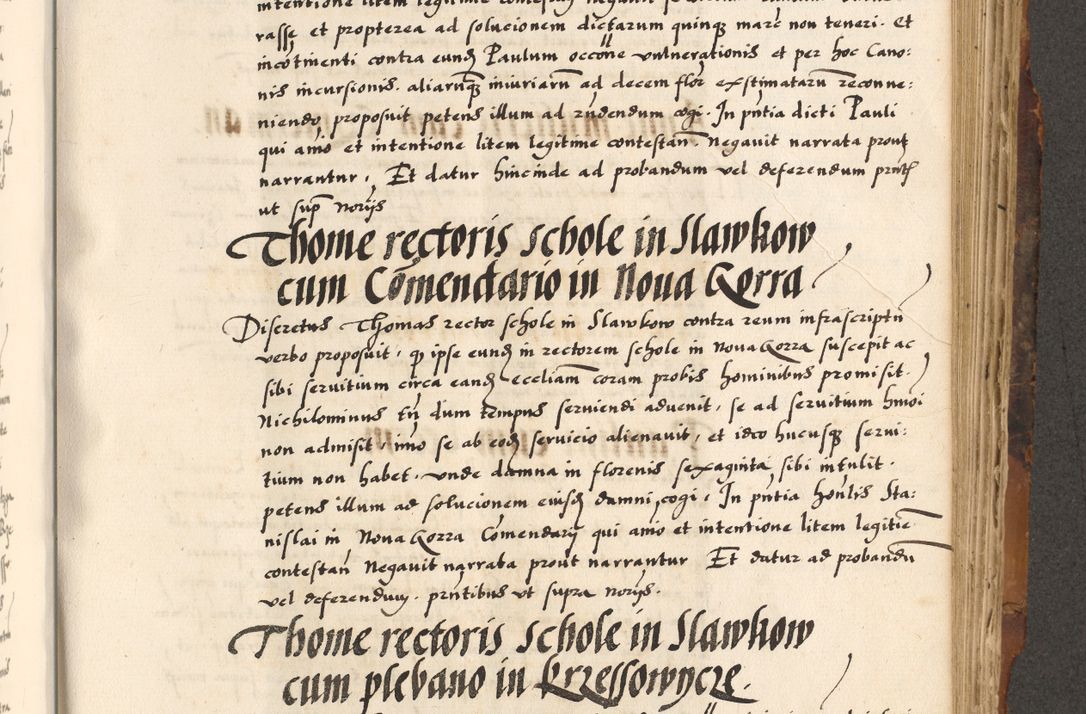 rasse et propterea ad solucionem dictarum quinqz marc non teneri. Et
incōtinenti contra eundz Paulum occōne vulnerationis et per hoc Cano-
nis incursionis. aliarumqz iniuriarū ad decem flor existimatarū reconue:
niendo proposuit petens illum ad rn̄dendum cogi. In pn̄tia dicti Pauli
qui aīo et intentione litem legitime contestan̄. Negauit narrata prout
narrantur. Et datur hincinde ad probandum vel deferendum
ut sup̄ norijs
Thome rectoris schole in Slawkow
cum Com̄endario in Noua Gorra
Discretus Thomas rector schole in Slawkow contra reum infrascriptū
verbo proposuit. qz ipse eundz in rectorem schole in Noua Gorra suscepit ac
sibi seruitium circa eandz eccliam coram probis hominibus promisit.
Nichilominus tn̄ dum tempus seruiendi aduenit, se ad seruitium hmoi
non admisit, imo se ab eodz seruicio alienauit, et ideo hucusqz serui:
tium non habet. vnde damna in florenis sexaginta sibi intulit.
petens illum ad solucionem eiusdz damni cogi. In pn̄tia hon̄lis Sta:
nislai in Noua Gorra Com̄endarij qui aīo et intentione litem legitie
contestan̄ Negauit narrata prout narrantur Et datur ad probandū
vel deferendum. pn̄tibus vt supra norijs.
Thome rectoris Schole in Slawkow
cum plebano in krzessowycze.